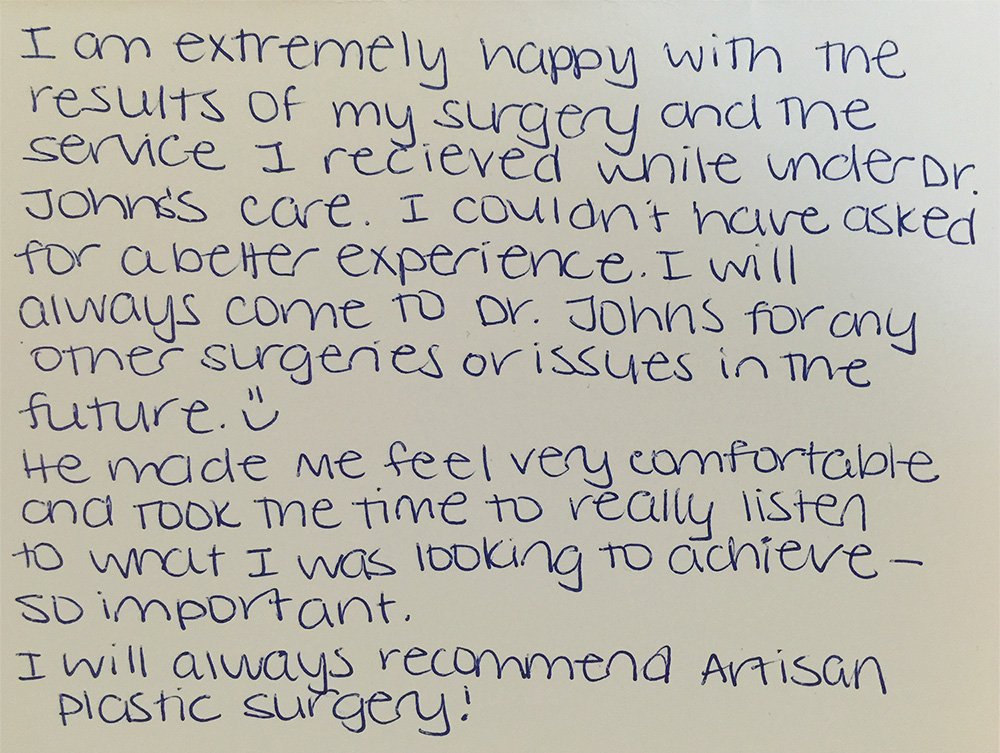 I am extremely happy with the
results of my surgery and the
service I recieved while under Dr.
Johns's care. I couldn't have asked
for a better experience. I will
always come to Dr. Johns for any
other surgeries or issues in the
future. Ü
He made me feel very comfortable
and took the time to really listen
to what I was looking to achieve –
so important.
I will always recommend Artisan
plastic surgery!